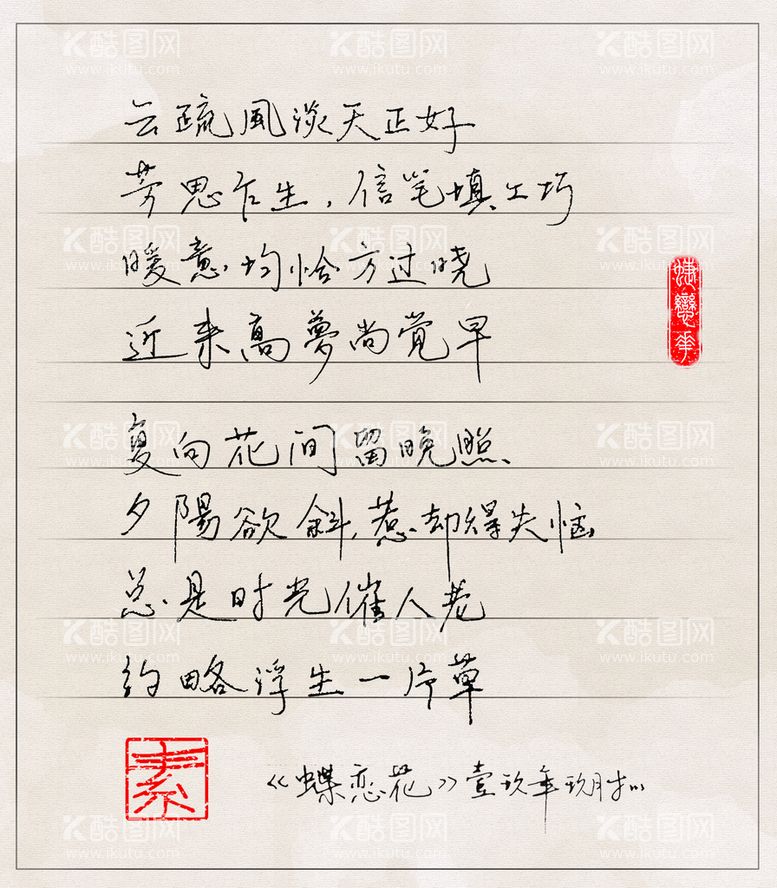 云疏風淡天正好
芳思乍生，信笔填工巧
暖意均恰方过晓
近来高夢尚觉早
复向花间留晚照
夕陽欲斜，惹却得失恼
总是时光催人老
约略浮生一片草
蝶戀花
素
《蝶恋花》壹玖年玖月
K酷图网
www.ikutu.com